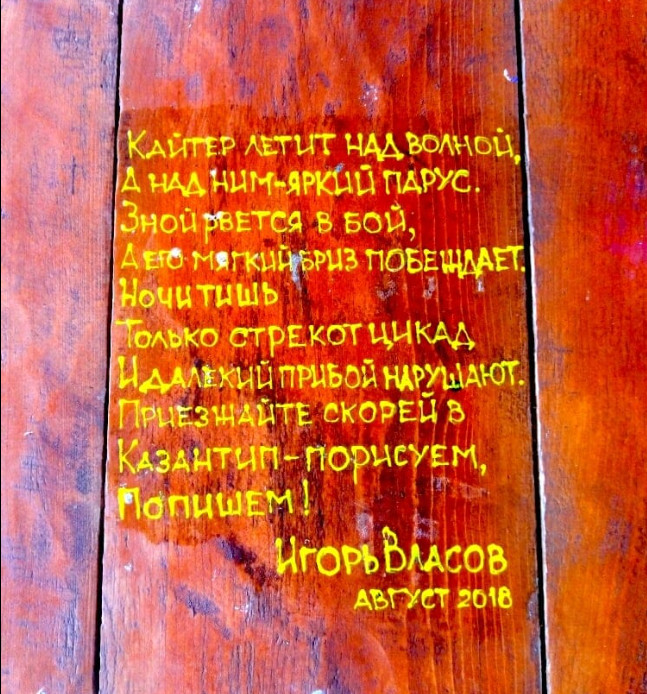 Кайтер летит над волной,
А над ним-яркий парус.
Зной рвется в бой,
А его мягкий бриз побеждает.
Ночи тишь
Только стрекот цикад
И далекий прибой нарушают.
Приезжайте скорей в
Казантип-порисуем,
Попишем!
Игорь Власов
август 2018